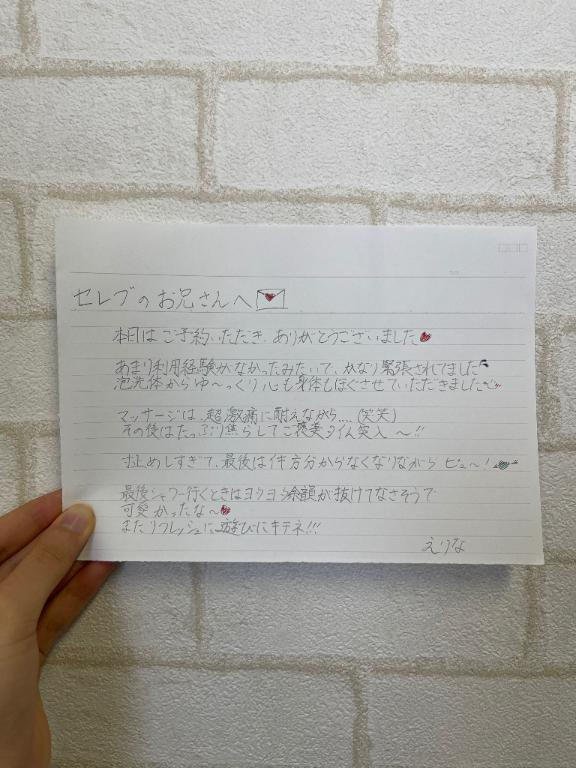 セレブのお兄さんへ
本日はご予約いただき、ありがとうございました
あまり利用経験がなかったみたいで、かなり緊張されてました
泡洗体からゆ〜っくり心も身体もほぐさせていただきました
マッサージは、超激痛に耐えながら....(笑笑)
その後はたっぷり焦らしてご褒美タイム突入〜!!
寸止めしすぎて、最後は何方分からなくなりながらピュ〜!
最後シャワー行くときはヨタヨタ
が抜けてなさそうで
可愛かったな〜
またリフレッシュに遊びにキテネ!!!
えりな